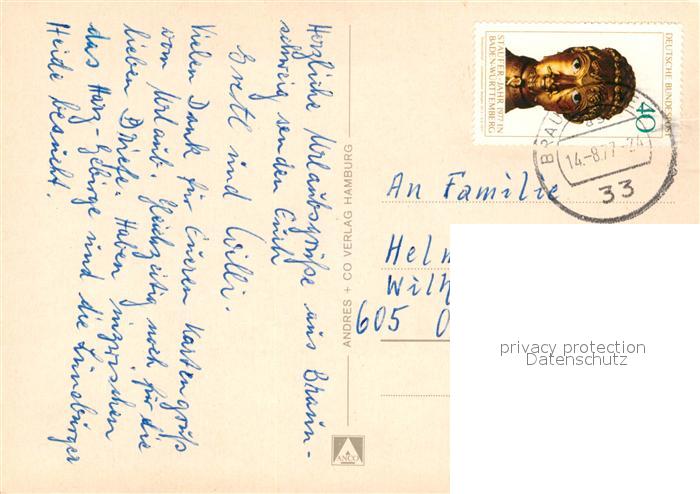 Herzliche Urlaubsgrüße aus Braun-
schweig senden Euch
Gretl und Willi.
Vielen Dank für Eueren Kartengruß
vom Urlaub. Gleichzeitig noch für die
lieben Briefe. Haben inzwischen
das Harz-Gebirge und die Lüneburger
Heide besucht.
ANDRES + CO VERLAG HAMBURG
ANCO
STAUFER-JAHR 1977 IN
BADEN-WÜRTTEMBERG
DEUTSCHE BUNDESPOST
40
BRAU
14.-8.77-24
33
An Familie
Hel
Wilh
605 O
privacy protection
Datenschutz